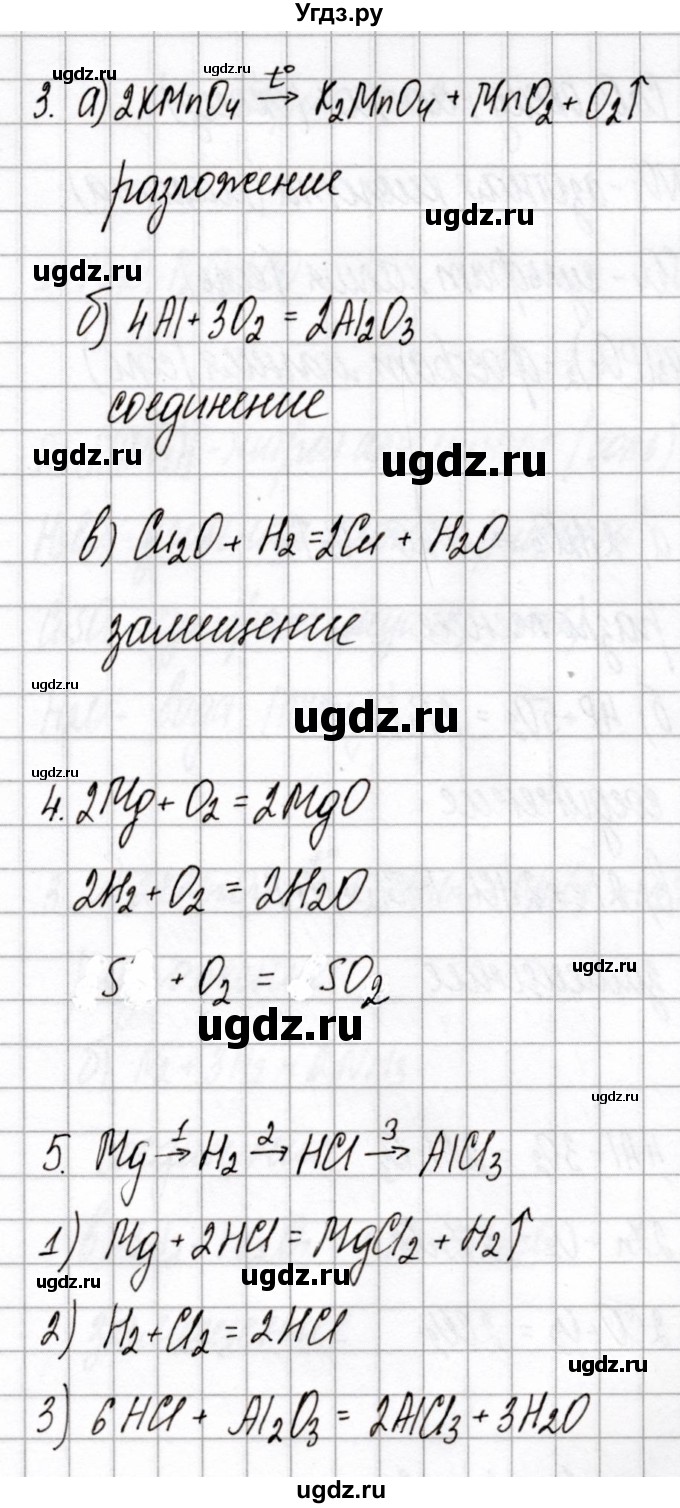 Угдз.ру
ugdz.ru ugdz.ru
3. а) 2KMnO4 t°→ K2MnO4 + MnO2 + O2↑
разложение
ugdz.ru
ugdz.ru
б) 4Al + 3O2 = 2Al2O3
соединение
ugdz.ru
ugdz.ru
в) Cu2O + H2 = 2Cu + H2O
замещение
ugdz.ru
ugdz.ru
ugdz.ru
4. 2Mg + O2 = 2MgO
2H2 + O2 = 2H2O
S + O2 = SO2
ugdz.ru
ugdz.ru
ugdz.ru
5. Mg 1→ H2 2→ HCl 3→ AlCl3
1) Mg + 2HCl = MgCl2 + H2↑
ugdz.ru ugdz.ru
2) H2 + Cl2 = 2HCl
ugdz.ru
3) 6HCl + Al2O3 = 2AlCl3 + 3H2O
ugdz.ru